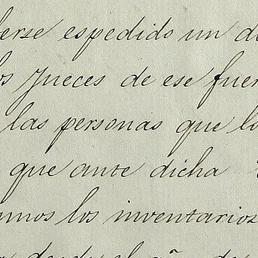 erse espedido un d
os Jueces de ese fuer
las personas que lo
que ante dicha
mos los inventarios